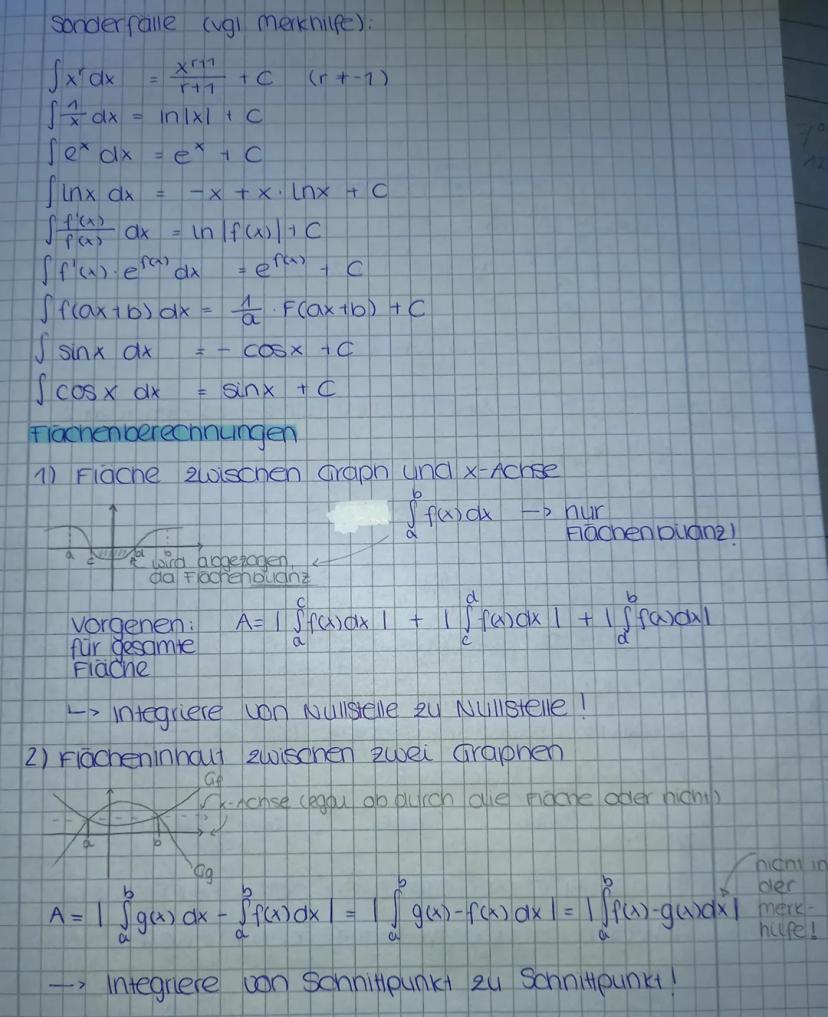 Sonderfälle (vgl Merkhilfe):
∫x^r dx = x^(r+1)/(r+1) + C (r ≠ -1)
∫1/x dx = ln|x| + C
∫e^x dx = e^x + C
∫lnx dx = -x + x · lnx + C
∫f'(x)/f(x) dx = ln|f(x)| + C
∫f'(x) · e^f(x) dx = e^f(x) + C
∫f(ax+b) dx = 1/a · F(ax+b) + C
∫ sinx dx = - cosx + C
∫ cosx dx = sinx + C
Flächenberechnungen
1) Fläche zwischen Graph und x-Achse
∫_a^b f(x) dx -> nur
Flächenbilanz!
a c d
wird abgezogen,
da Flächenbilanz
Vorgehen: A = |∫_a^c f(x)dx| + |∫_c^d f(x)dx| + |∫_d^b f(x)dx|
für gesamte
Fläche
↳ Integriere von Nullstelle zu Nullstelle!
2) Flächeninhalt zwischen zwei Graphen
Gf
x-Achse (egal ob durch die Fläche oder nicht)
a b
Gg
A = |∫_a^b g(x) dx - ∫_a^b f(x) dx| = |∫_a^b g(x) - f(x) dx| = |∫_a^b f(x) - g(x) dx|
nicht in
der
Merk-
hilfe!
-> Integriere von Schnittpunkt zu Schnittpunkt!